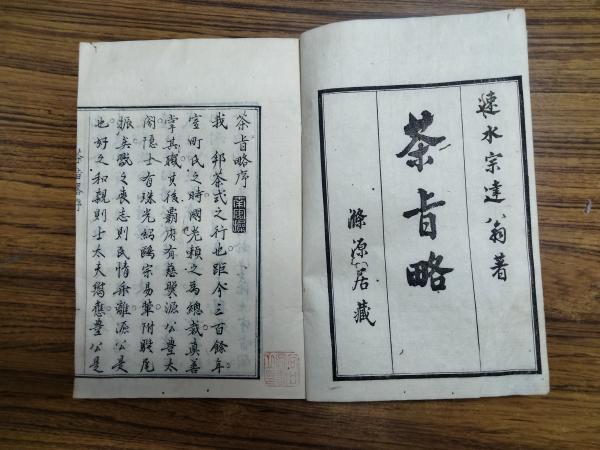 速水宗達翁著
茶旨略
滌源居藏
茶旨略序
我邦茶式之行也距今三百餘年
室町氏之時國老賴之為總裁真善
掌其職其後霸府有慈照源公豊太
閤隠士有珠光紹鷗宗易輩附驥尾
振矣戰之喪志則民情乖離源公是
也好之和親則士太夫懋應豊公是
茶旨略序